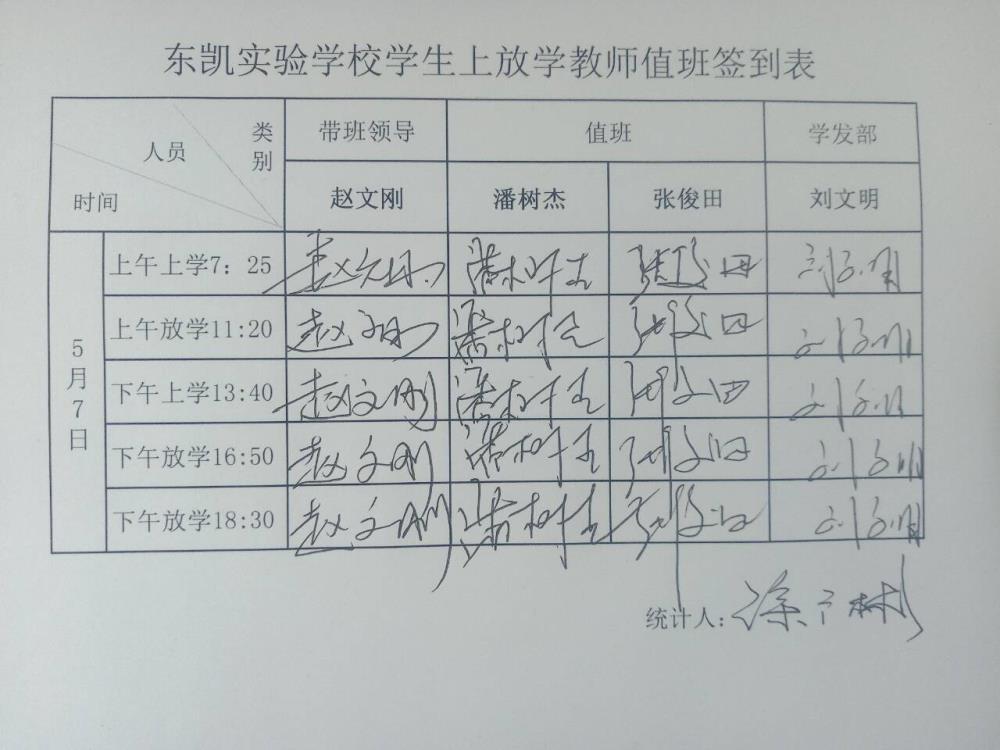 东凯实验学校学生上放学教师值班签到表
类别 带班领导 值班 学发部
人员
时间 赵文刚 潘树杰 张俊田 刘文明
5月7日
上午上学7：25 赵文刚 潘树杰 张俊田 刘文明
上午放学11:20 赵文刚 潘树杰 张俊田 刘文明
下午上学13:40 赵文刚 潘树杰 张俊田 刘文明
下午放学16:50 赵文刚 潘树杰 张俊田 刘文明
下午放学18:30 赵文刚 潘树杰 张俊田 刘文明
统计人：